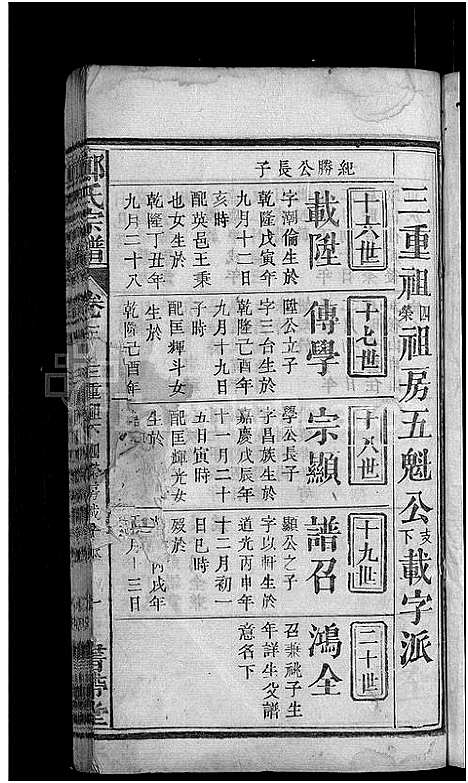 三重祖四榮祖房五魁公支下載字派
十六世
十七世
十八世
十九世
二十世
紀勝公長子
載陞
字潮倫生於
乾隆戊寅年
九月十二日
亥時
配英邑王秉
也女生於
乾隆丁丑年
九月二十八
傳學
陞公立子
字三台生於
乾隆己酉年
九月十九日
子時
配匡輝斗女
生於
乾隆己酉年
宗顯
學公長子
字昌族生於
嘉慶戊辰年
十一月二十
五日寅時
配匡輝光女
生於
譜召
顯公之子
字以軒生於
道光丙申年
十二月初一
日巳時
歿於
丙戌年
月十三日
鴻全
召兼祧子生
年詳生父譜
意名下
鄭氏宗譜
卷
三重祖